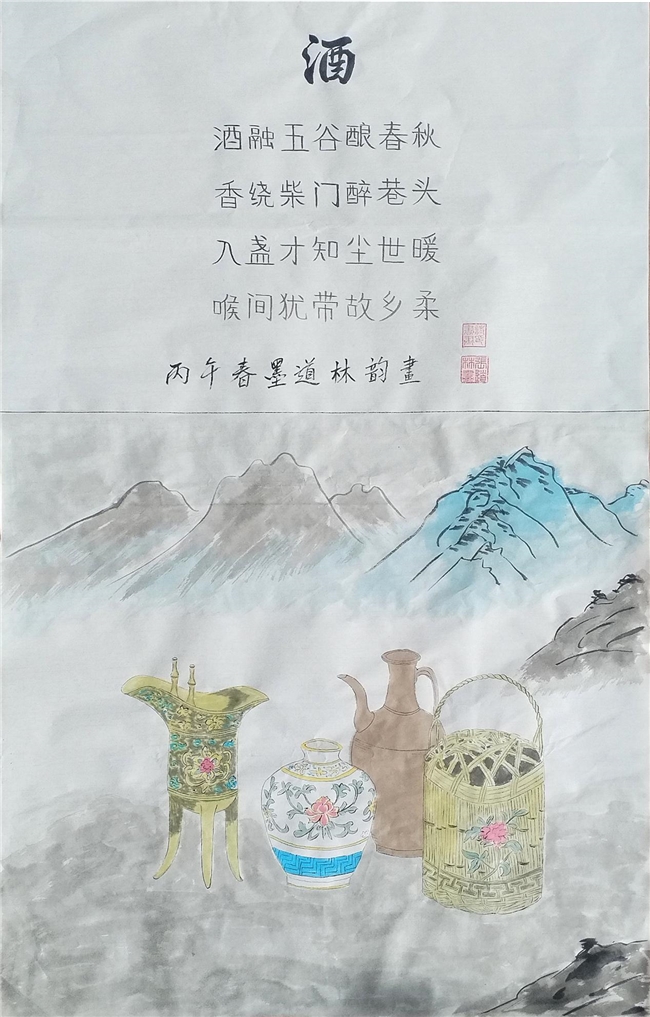 酒
酒融五谷酿春秋
香绕柴门醉巷头
入盏才知尘世暖
喉间犹带故乡柔
丙午春墨道林韵畫